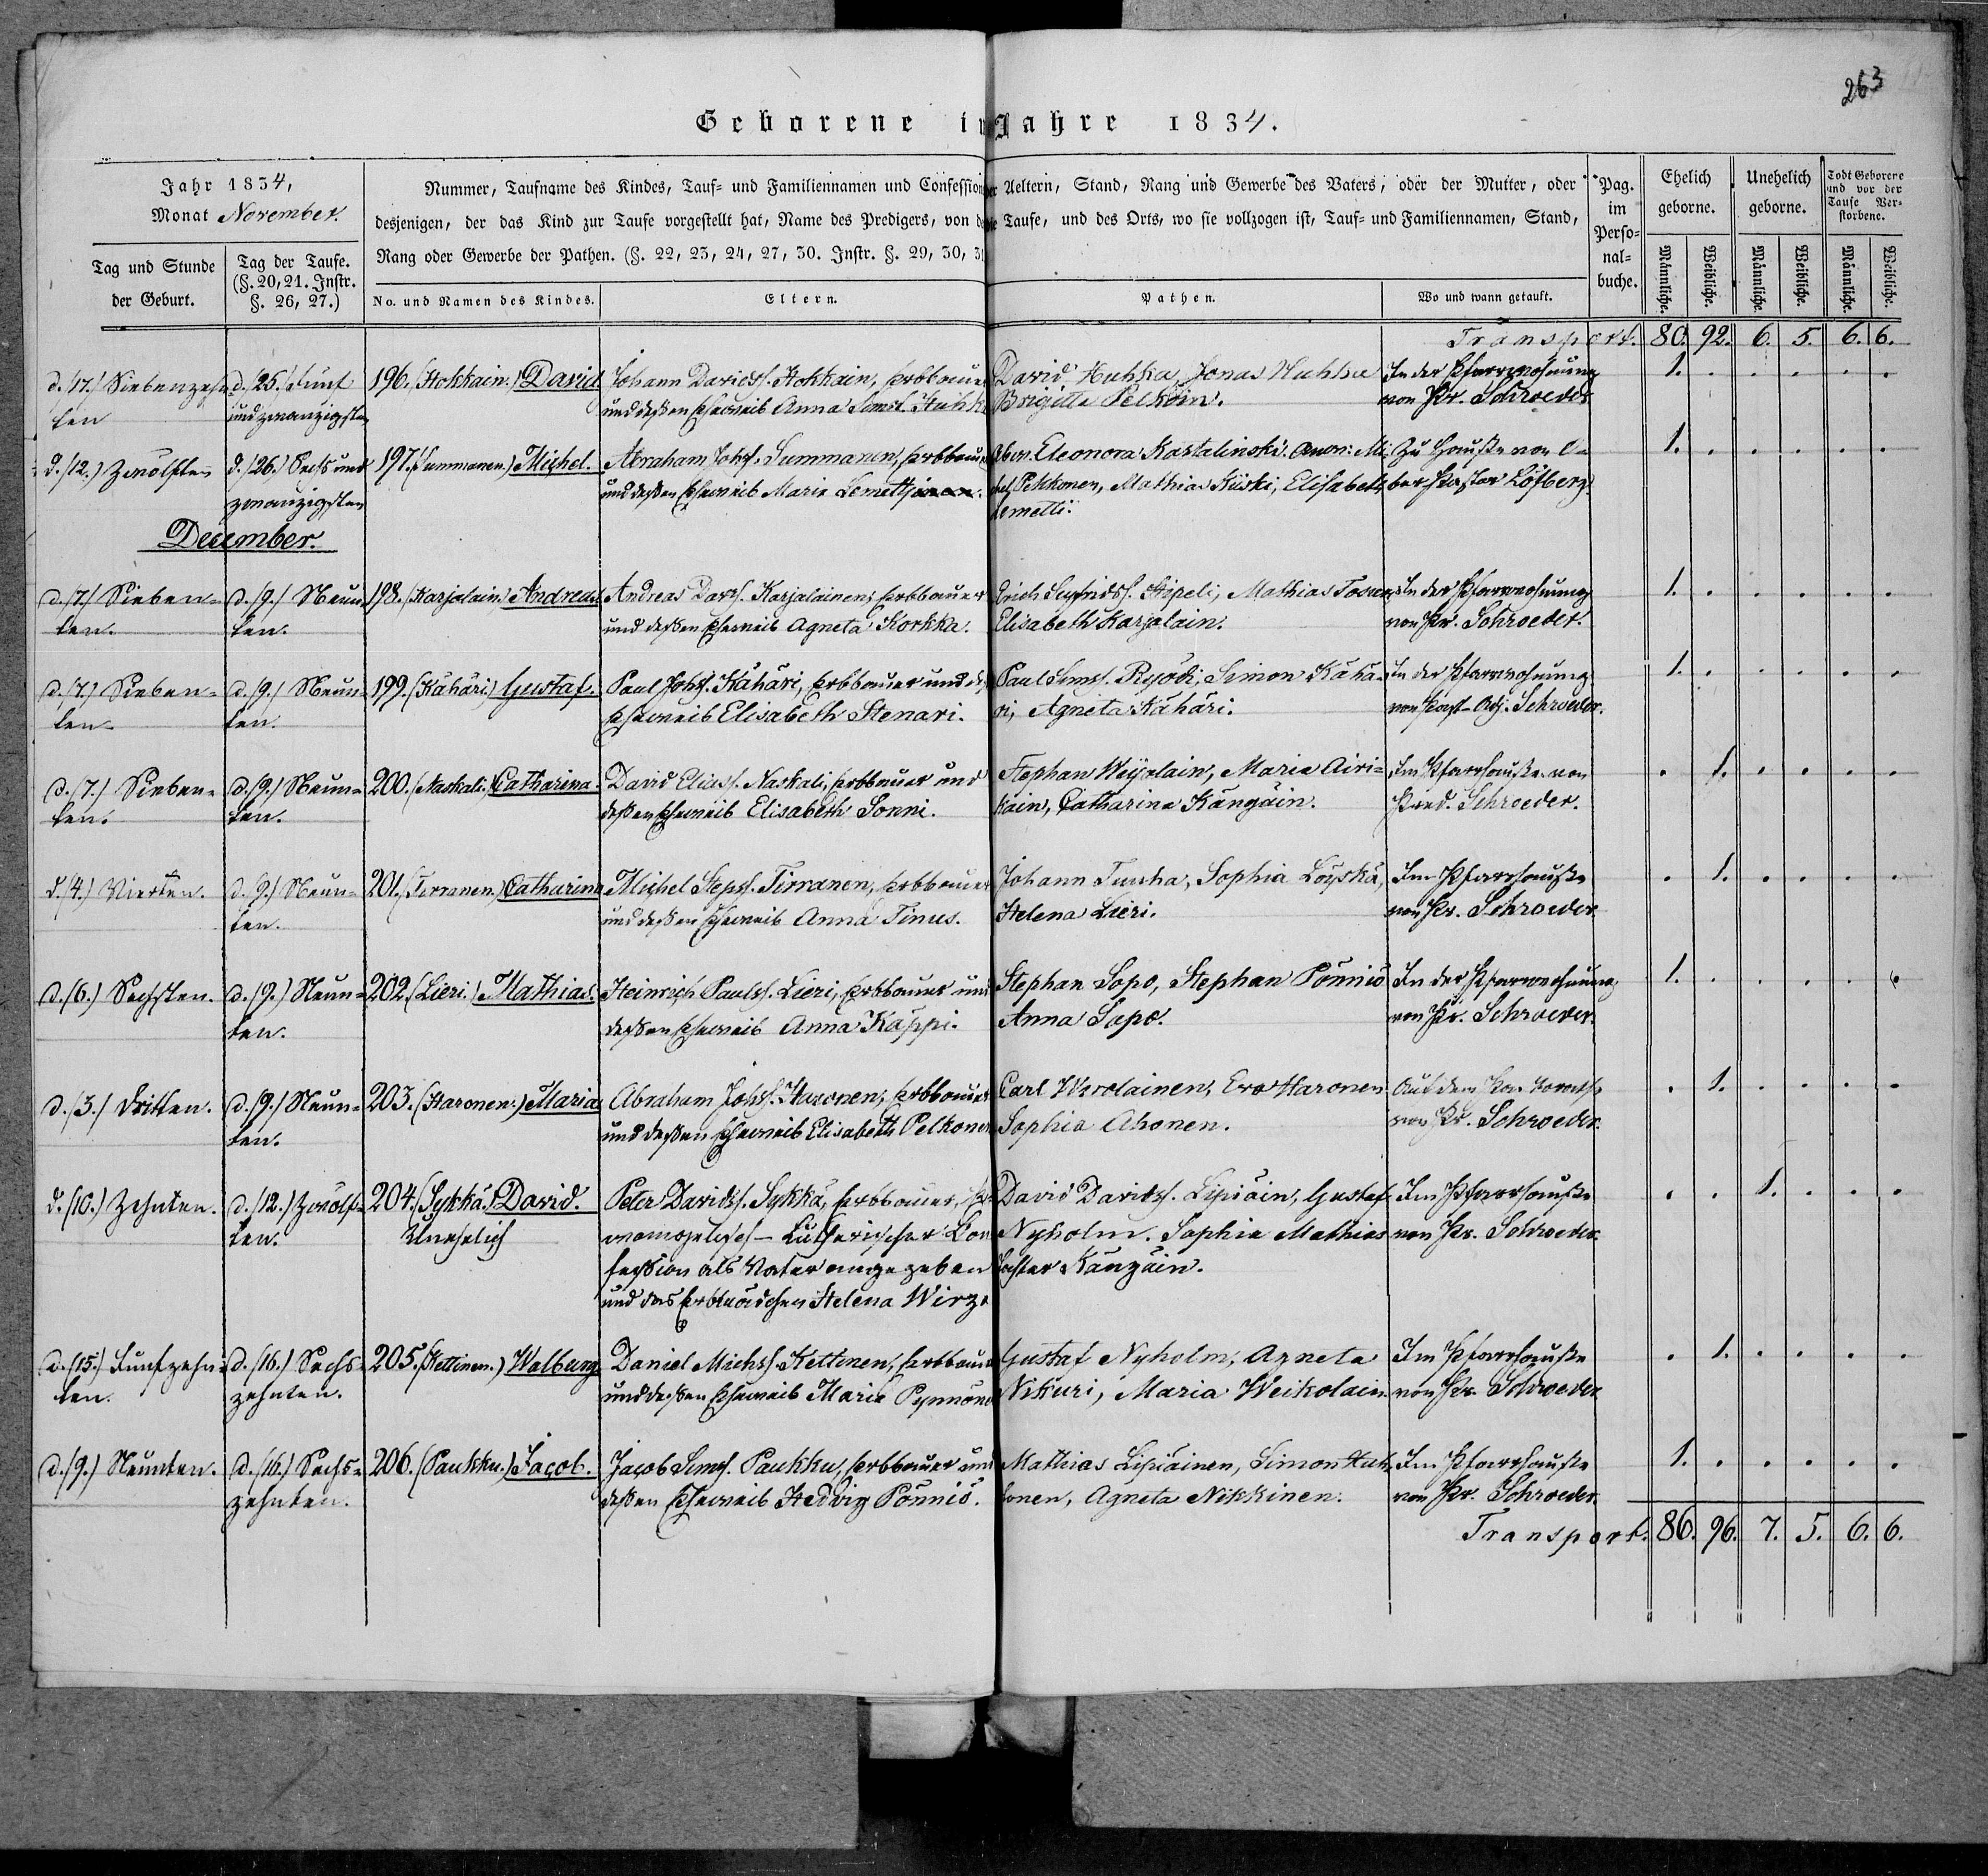 263
Geborene im Jahre 1834.
Jahr 1834,
Monat November.
Tag und Stunde
der Geburt.
Tag der Taufe.
(§. 20, 21. Instr.
§. 26, 27.)
Nummer, Taufname des Kindes, Tauf- und Familiennamen und Confession der Aeltern, Stand, Rang und Gewerbe des Vaters, oder der Mutter, oder
desjenigen, der das Kind zur Taufe vorgestellt hat, Name des Predigers, von die Taufe, und des Orts, wo sie vollzogen ist, Tauf- und Familiennamen, Stand,
Rang oder Gewerbe der Pathen. (§. 22, 23, 24, 27, 30. Instr. §. 29, 30, 31
No. und Namen des Kindes.
Eltern.
Pathen.
Wo und wann getauft.
Pag.
im
Perso-
nal-
buche.
Ehelich
geborne.
Unehelich
geborne.
Todt Geborene
und vor der
Taufe Ver-
storbene.
Männliche.
Weibliche.
Männliche.
Weibliche.
Männliche.
Weibliche.
Transport. 80. 92. 6. 5. 6. 6.
d. (17.) Siebenzehn-
ten
d. (25.) Fünf
und zwanzigsten
196. (Hokkain.) David
Johann Davidss. Hokkain, Erbbauer
und deßen Eheweib Anna Simst. Huhk
David Huhka, Jonas Huhka
Brigitta Pelkoin.
In der Pfarrwohnung
von Pr. Schroeder
1. . . . . .
d. (12.) Zwölften
d. (26.) Sechs und
zwanzigsten
197. (Summanen.) Michel.
Abraham Johss. Summanen, Erbbauer
und deßen Eheweib Maria Lemetti
Eleonora Kastalinski. Mi-
chel Pekkonen, Mathias Kiiski, Elisabeth
Lemetti.
Zu Hause von
Pastor Löfberg.
1. . . . . .
December.
d. (7.) Sieben-
ten.
d. (9.) Neun-
ten.
198. (Karjalain.) Andreas
Andreas Davss. Karjalainen, Erbbauer
und deßen Eheweib Agneta Korkka.
Erich Sigfridss. Mathias
Elisabeth Karjalain.
In der Pfarrwohnung
von Pr. Schroeder.
1. . . . . .
d. (7.) Sieben-
ten.
d. (9.) Neun-
ten.
199. (Kähäri) Gustaf.
Paul Johss. Kähäri, Erbbauer und deß
Eheweib Elisabeth Stenari.
Paul Simss. Ryöti, Simon Kähä-
ri, Agneta Kähäri.
In der Pfarrwohnung
von Past-Adj. Schroeder.
1. . . . . .
d. (7.) Sieben-
ten.
d. (9.) Neun-
ten.
200. (Naskali.) Catharina.
David Eliass. Naskali, Erbbauer und
deßen Eheweib Elisabeth Sonni.
Stephan Weijalain, Maria Airi-
kain, Catharina Kängäin.
Im Pfarrhause von
Pred. Schroeder.
. 1. . . . .
d. (4.) Vierten.
d. (9.) Neun-
ten.
201. (Tirranen.) Catharina
Michel Stepss. Tirranen, Erbbauer
und deßen Eheweib Anna Tinus.
Johann Tuuha, Sophia Löyskä,
Helena Lieri.
Im Pfarrhause
von Pr. Schroeder
. 1. . . . .
d. (6.) Sechsten.
d. (9.) Neun-
ten.
202. (Lieri.) Mathias.
Heinrich Paulss. Lieri, Erbbauer und
deßen Eheweib Anna Käppi.
Stephan Sopo, Stephan Pönniö
Anna Sapo.
In der Pfarrwohnung
von Pr. Schroeder.
1. . . . . .
d. (3.) Dritten.
d. (9.) Neun-
ten.
203. (Haronen.) Maria
Abraham Johss. Haronen, Erbbauer
und deßen Eheweib Elisabeth Pelkonen
Carl Werolainen, Eva Haronen
Sophia Ahonen.
Auf dem
von Pr. Schroeder.
. 1. . . . .
d. (10.) Zehnten.
d. (12.) Zwölf-
ten.
204. (Sykkä.) David.
Unehelich
Peter Davidss. Sykkä, Erbbauer, E-
vangelisch-Lutherischer Con
fession als Vater angegeben
und das Erbmädchen Helena Wirz
David Davidss. Lipiäin, Gustaf
Nyholm. Sophia Mathias
tochter Kängäin.
Im Pfarrhause
von Pr. Schroeder.
. . 1. . . .
d. (15.) Funfzehn-
ten.
d. (16.) Sechs-
zehnten.
205. (Kettinen.) Walburg
Daniel Michss. Kettinen, Erbbauer
und deßen Eheweib Maria Pynnöne
Gustaf Nyholm, Agneta
Nikuri, Maria Weikolain
Im Pfarrhause
von Pr. Schroeder
. 1. . . . .
d. (9.) Neunten.
d. (16.) Sechs-
zehnten.
206. (Paukku.) Jacob.
Jacob Simss. Paukku, Erbbauer und
deßen Eheweib Hedvig Pönniö.
Mathias Lipiäinen, Simon Huh-
tonen, Agneta Nikkinen.
Im Pfarrhause
von Pr. Schroeder
1. . . . . .
Transport. 86. 96. 7. 5. 6. 6.